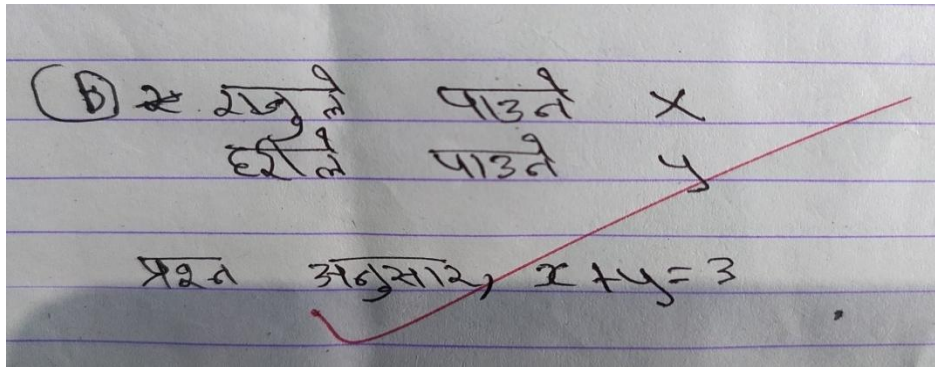 (b) राजुले पाउने x
हरीले पाउने y
प्रश्न अनुसार, x + y = 3